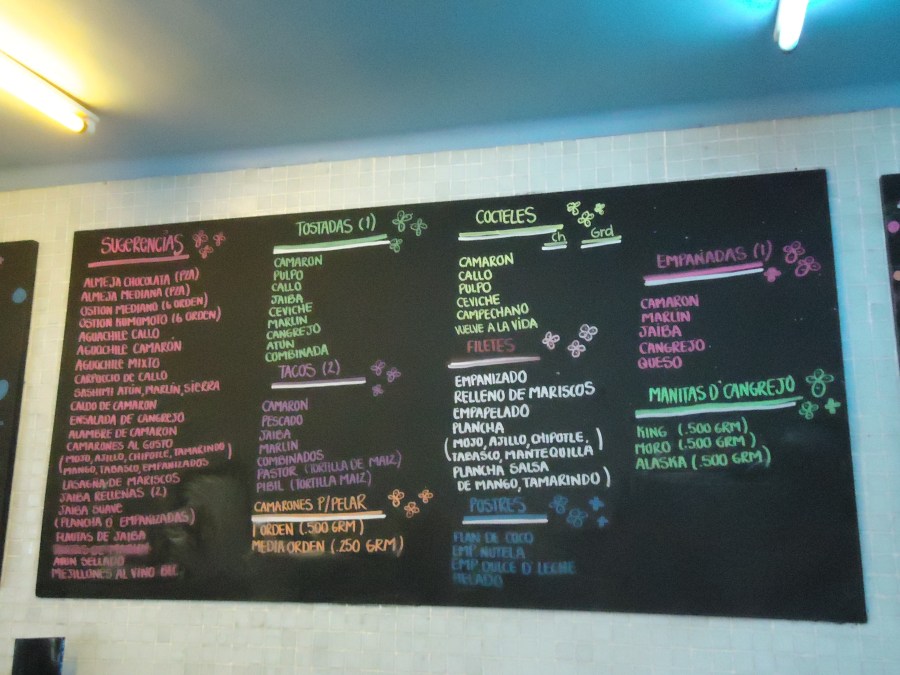 SUGERENCIAS
ALMEJA CHOCOLATA (PZA)
ALMEJA MEDIANA (PZA)
OSTION MEDIANO (6 ORDEN)
OSTION KUMOMOTO (6 ORDEN)
AGUACHILE CALLO
AGUACHILE CAMARÓN
AGUACHILE MIXTO
CARPACCIO DE CALLO
SASHIMI ATÚN, MARLÍN, SIERRA
CALDO DE CAMARON
ENSALADA DE CANGREJO
ALAMBRE DE CAMARON
CAMARONES AL GUSTO
(MOJO, AJILLO, CHIPOTLE, TAMARINDO)
MANGO, TABASCO, EMPANIZADOS
LASAGÑA DE MARISCOS
JAIBA RELLENAS (2)
JAIBA SUAVE
(PLANCHA Ó EMPANIZADAS)
FLAUTAS DE JAIBA
ATUN SELLADO
MEJILLONES AL VINO
TOSTADAS (1)
CAMARON
PULPO
CALLO
JAIBA
CEVICHE
MARLIN
CANGREJO
ATÚN
COMBINADA
TACOS (2)
CAMARON
PESCADO
JAIBA
MARLIN
COMBINADOS
PASTOR (TORTILLA DE MAIZ)
PIBIL (TORTILLA MAIZ)
CAMARONES P/PELAR
1 ORDEN (.500 GRM)
MEDIA ORDEN (.250 GRM)
COCTELES
Ch Grd
CAMARON
CALLO
PULPO
CEVICHE
CAMPECHANO
VUELVE A LA VIDA
FILETES
EMPANIZADO
RELLENO DE MARISCOS
EMPAPELADO
PLANCHA
(MOJO, AJILLO, CHIPOTLE,)
TABASCO, MANTEQUILLA
PLANCHA SALSA
DE MANGO, TAMARINDO)
POSTRES
FLAN DE COCO
EMP NUTELA
EMP DULCE D' LECHE
HELADO
EMPAÑADAS (1)
CAMARON
MARLIN
JAIBA
CANGREJO
QUESO
MANITAS D' CANGREJO
KING (.500 GRM)
MORO (.500 GRM)
ALASKA (.500 GRM)